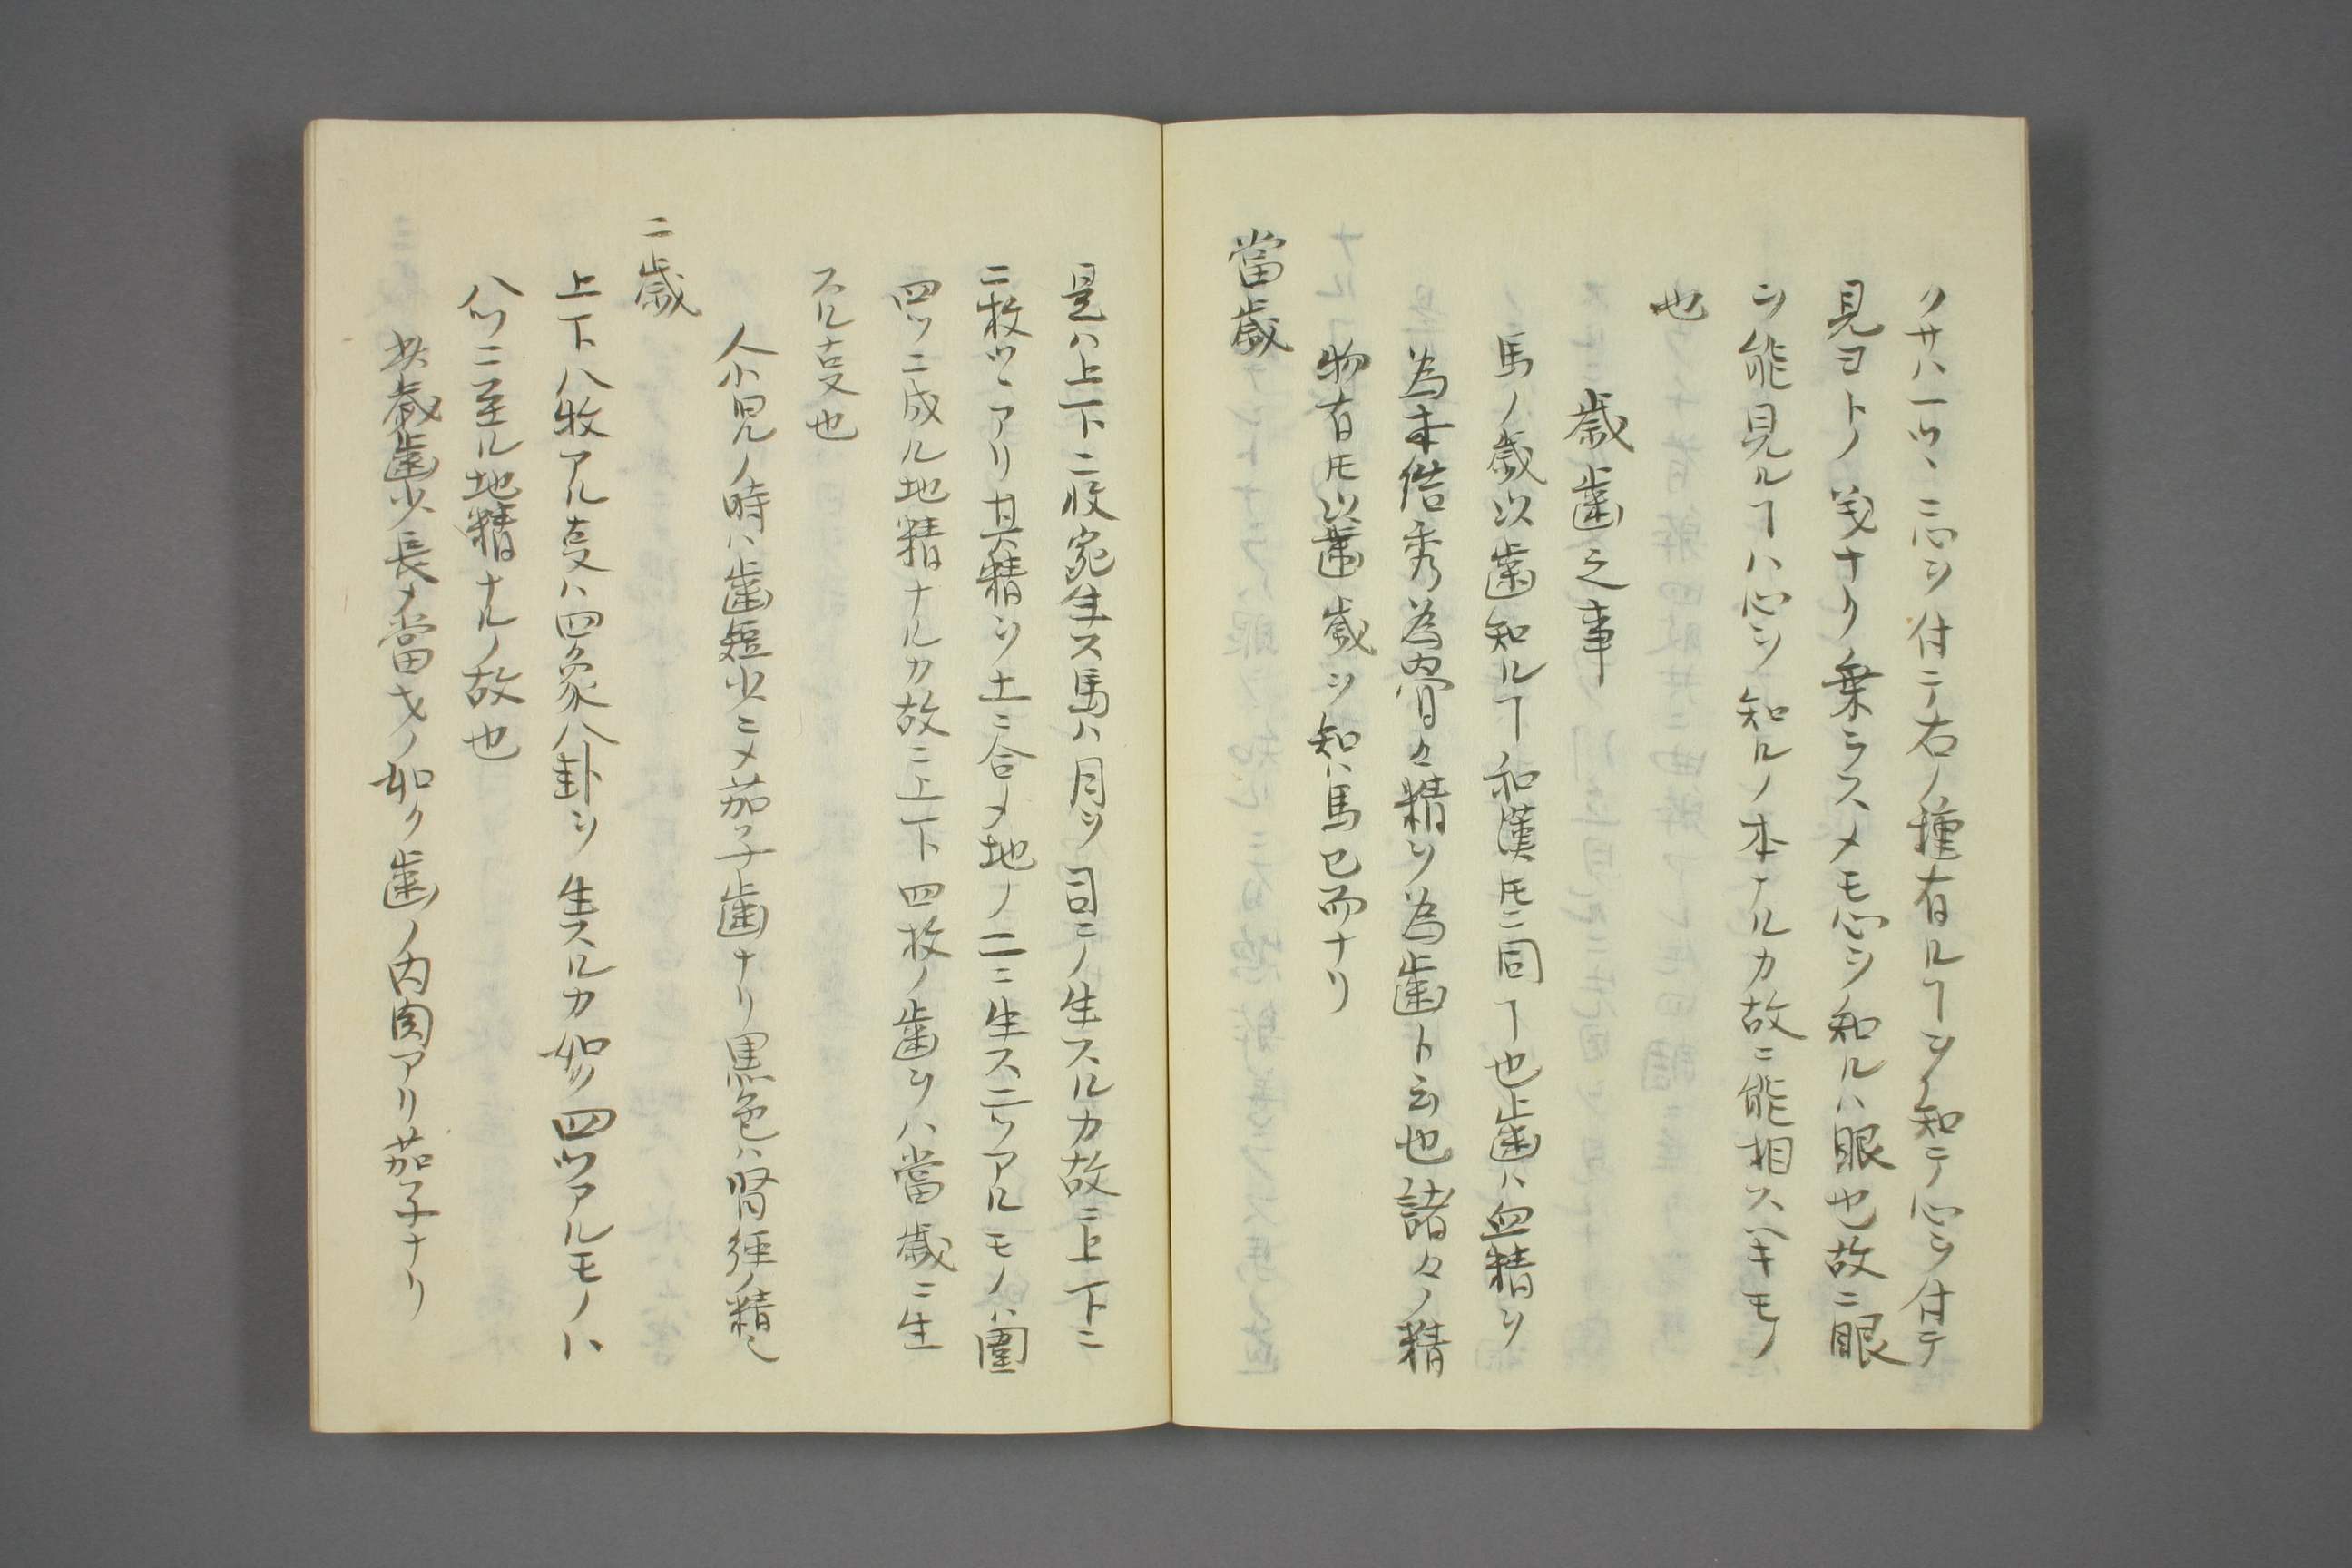 クサハ一ツヽ心ヲ付テ右ノ種有ルヿヲ知テ心ヲ付テ
見ヨトノ義ナリ乗ラスメモ心ヲ知ルハ眼也故ニ眼
ヲ能見ルヿハ心ヲ知ルノ本ナルカ故ニ能相スヘキモノ
也
歳歯之事
馬ノ歳以歯知ルヿ和漢𪜈ニ同ヿ也歯ハ血精ヲ
為本借秀為骨々精ヲ為歯ト云也諸々ノ精
物有𪜈以歯歳ヲ知ハ馬已而ナリ
當歳
是ハ上下二枚宛生ス馬ハ月ヲ司ニノ生スルカ故ニ上下ニ
二枚ツヽアリ其精ヲ土ニ合メ地ノ二ニ生ス二ツアルモノハ圍
四ツニ成ル地精ナルカ故ニ上下四枚ノ歯ヲハ當歳ニ生
スル叓也
人小児ノ時ハ歯短少ニメ茄子歯ナリ黒色ハ腎経ノ精也
二歳
上下八牧アル叓ハ四象八卦ヲ生スルカ如ク四ツアルモノハ
八ツニ至ル地精ナルノ故也
此歳歯少長メ當才ノ如ク歯ノ内肉アリ茄子ナリ